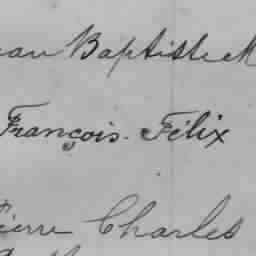 ean Baptiste M
François. Félix
Pierre Charles